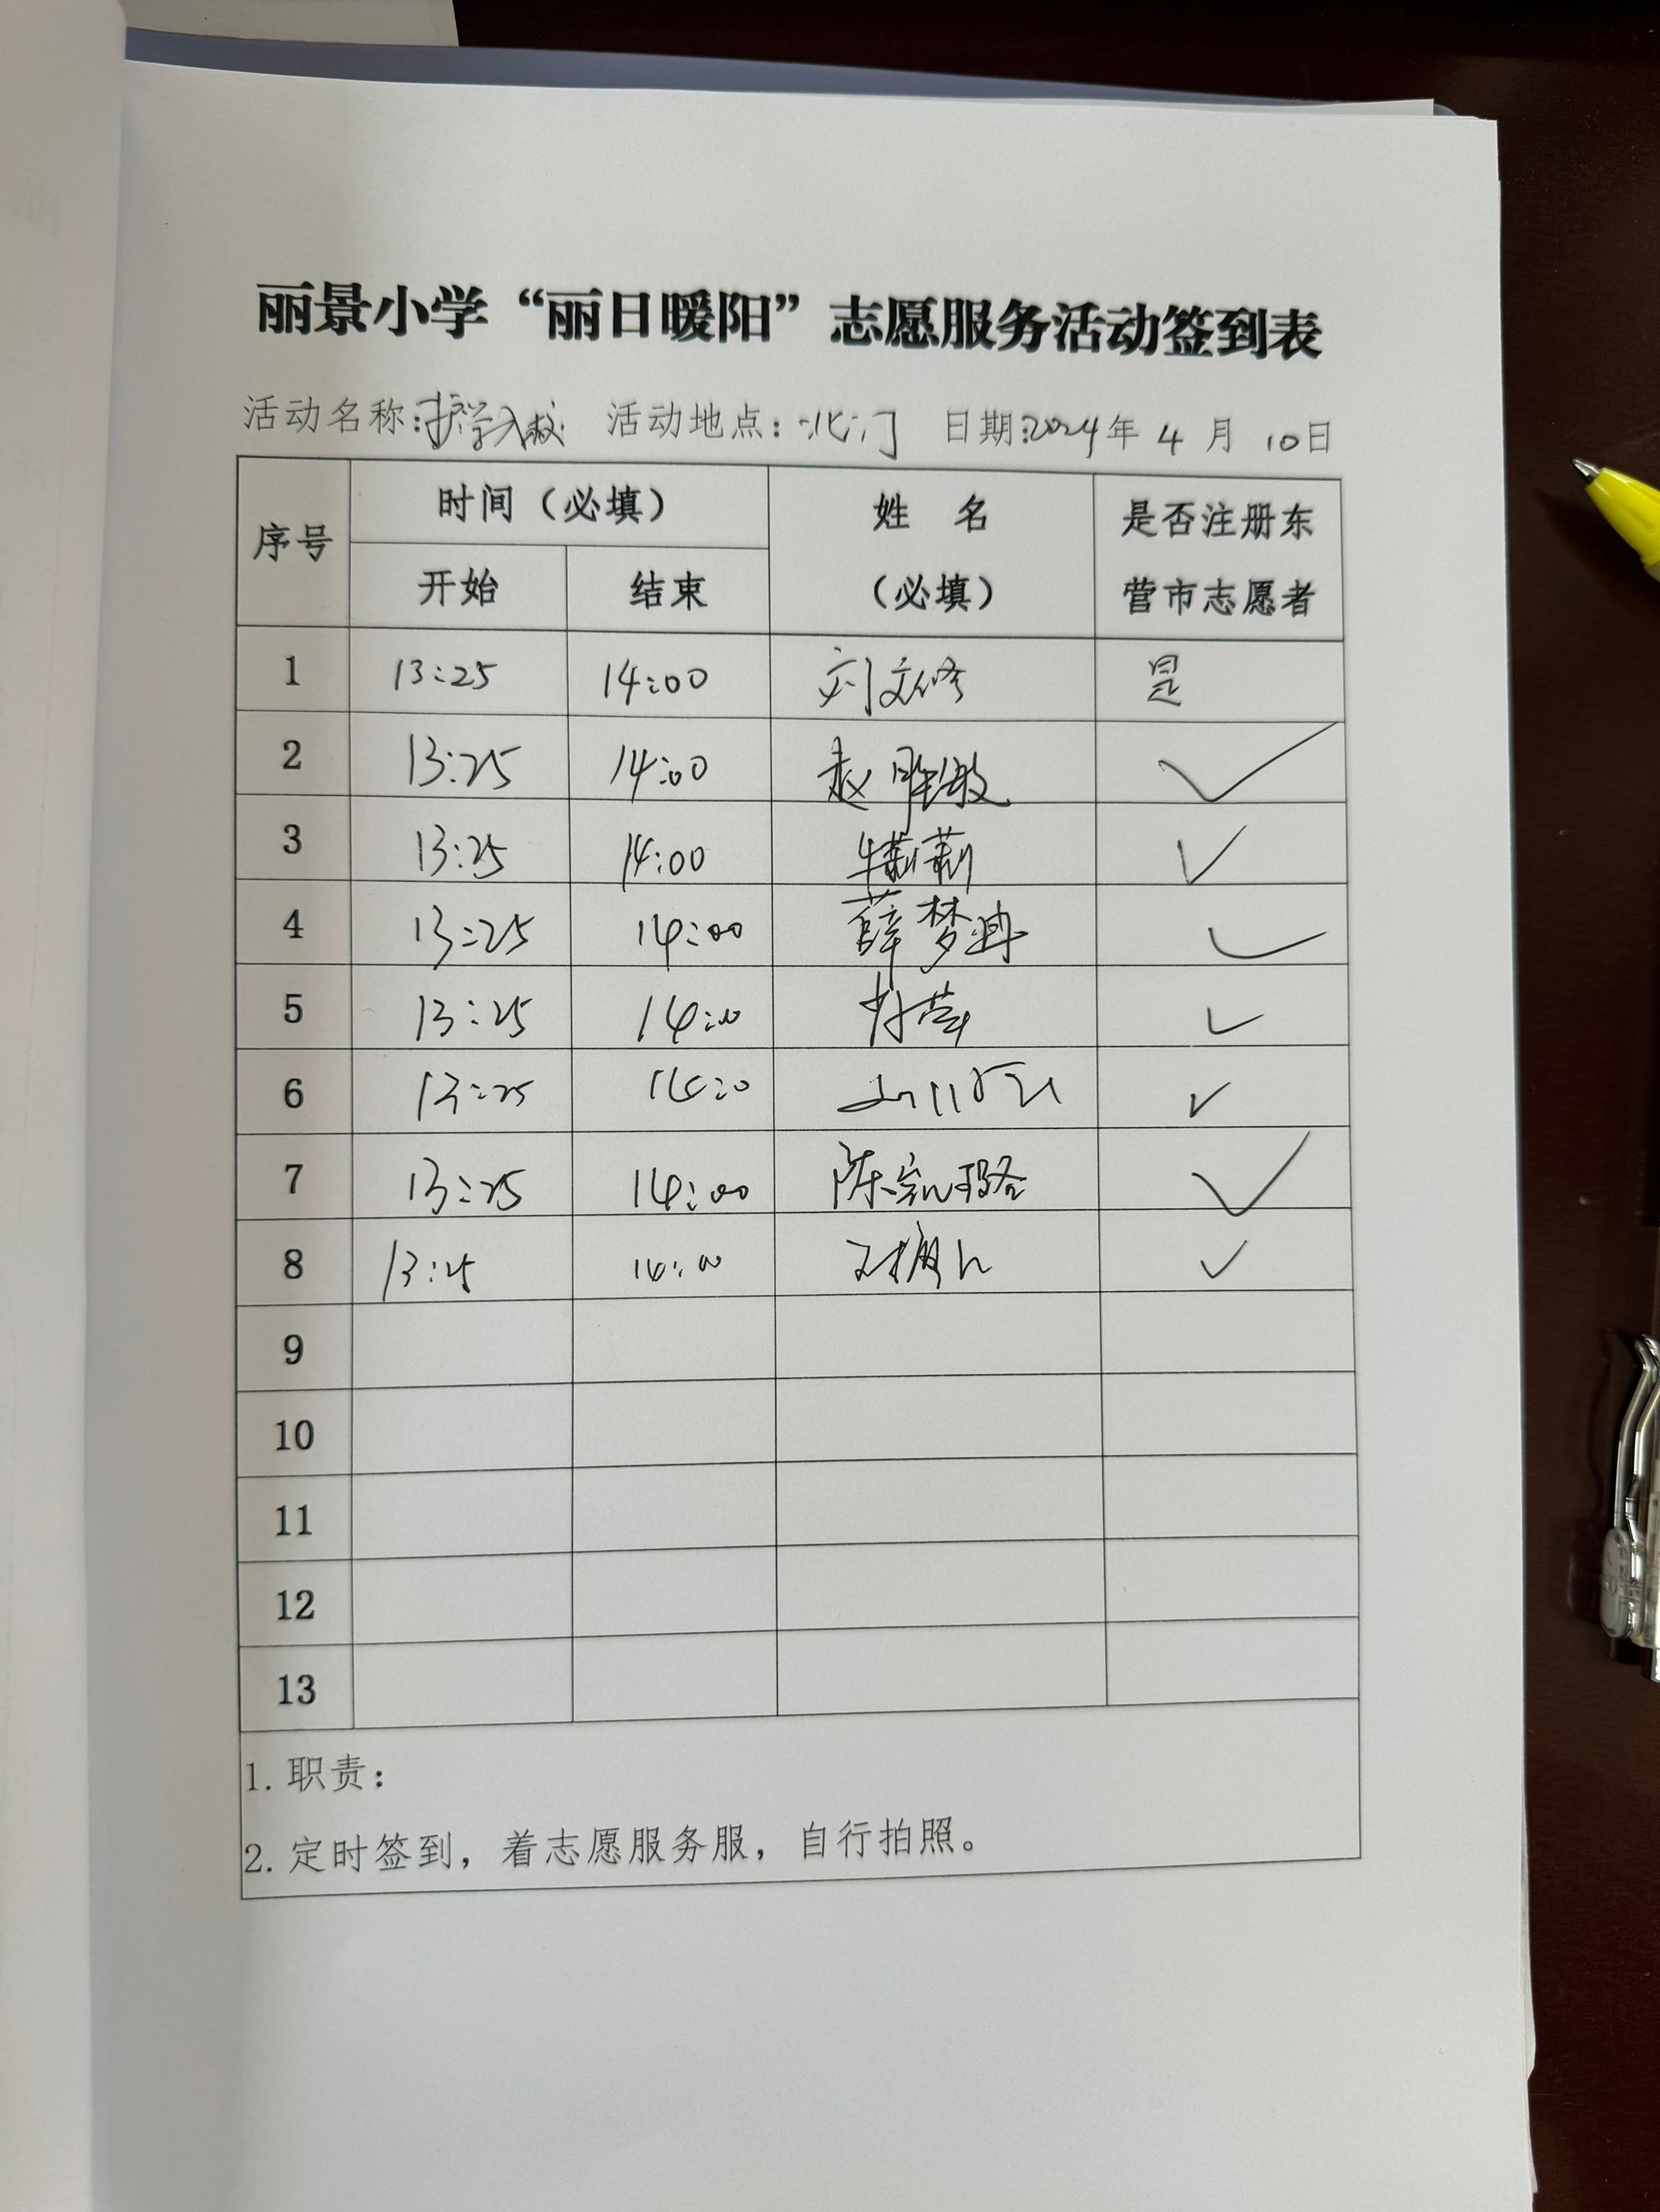 丽景小学“丽日暖阳”志愿服务活动签到表
活动名称:护学入校 活动地点:北门 日期:2024年 4 月 10日
序号 时间（必填） 姓 名（必填） 是否注册东营市志愿者
开始 结束
1 13:25 14:00 刘文修 是
2 13:25 14:00 赵胜敏 ✓
3 13:25 14:00 牛莉莉 ✓
4 13:25 14:00 薛梦 ✓
5 13:25 14:00 ✓
6 13:25 14:00 ✓
7 13:25 14:00 陈 ✓
8 13:25 14:00 ✓
9
10
11
12
13
1. 职责:
2. 定时签到，着志愿服务服，自行拍照。